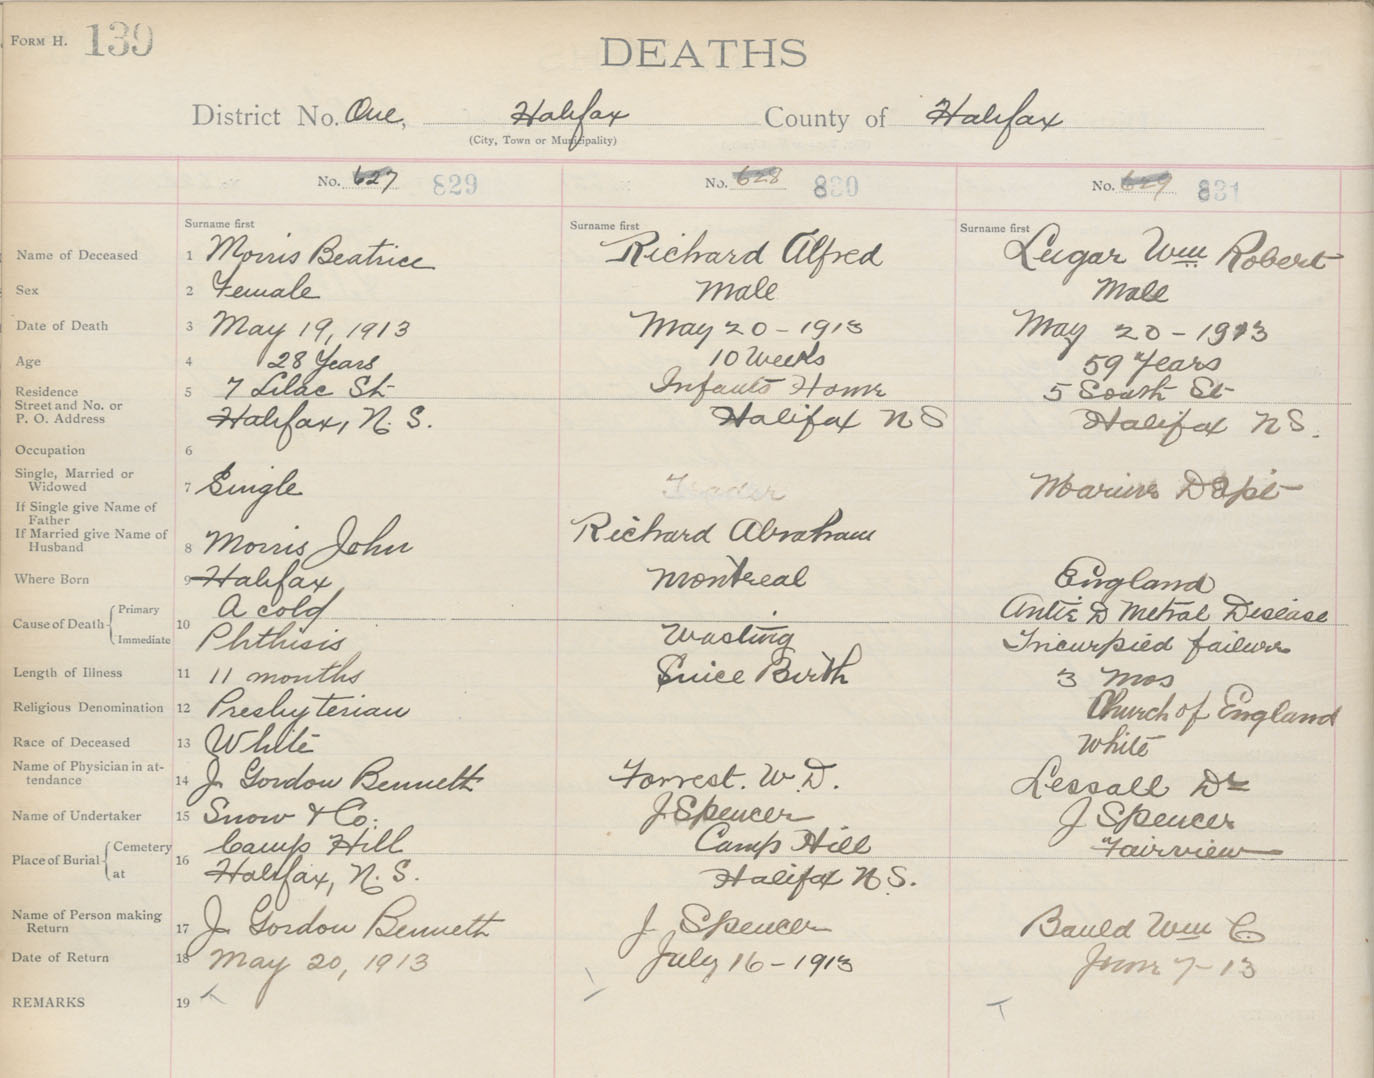 FORM H. 139
DEATHS
District No. One, Halifax County of Halifax
(City, Town or Municipality)
No. 627 829 No. 628 830 No. 629 831
Surname first Surname first Surname first
Name of Deceased 1 Morris Beatrice Richard Alfred Lugar Wm Robert
Sex 2 Female Male Male
Date of Death 3 May 19, 1913 May 20-1913 May 20-1913
Age 4 28 Years 10 Weeks 59 Years
Residence 5 7 Lilac St Infants Home 5 South St
Street and No. or
P. O. Address Halifax, N.S. Halifax NS Halifax NS.
Occupation 6
Single, Married or
Widowed 7 Single Marine Dept
If Single give Name of
Father
If Married give Name of
Husband 8 Morris John Richard Abraham
Where Born 9 Halifax Montreal England
Cause of Death Primary 10 A cold Metral Disease
Immediate Phthisis Wasting failure
Length of Illness 11 11 months Since Birth 3 mos
Religious Denomination 12 Presbyterian Church of England
Race of Deceased 13 White White
Name of Physician in at-
tendance 14 J. Gordon Bennett Forrest. W. D. Dr
Name of Undertaker 15 Snow & Co. J Spencer J Spencer
Place of Burial Cemetery 16 Camp Hill Camp Hill Fairview
at Halifax, N.S. Halifax NS.
Name of Person making
Return 17 J. Gordon Bennett J Spencer Bauld Wm C
Date of Return 18 May 20, 1913 July 16-1913 June 7-13
REMARKS 19